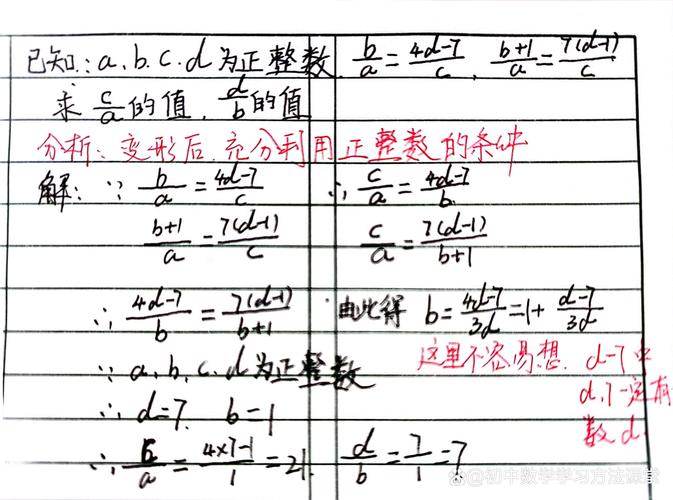 已知:a,b,c,d为正整数, b/a=4d-7/c, b+1/a=7(d-1)/c
求c/a的值, d/b的值
分析:变形后,充分利用正整数的条件
解:∵ b/a=4d-7/c ∴ c/a=4d-7/b
b+1/a=7(d-1)/c c/a=7(d-1)/b+1
∴ 4d-7/b=7(d-1)/b+1 由此得 b=4d-7/3d=1+d-7/3d
∵ a,b,c,d为正整数
这里不容易想. d-7中
d,7一定有
数d
∴ d=7, b=1
∴ /a=4×7-1/1=21. d/b=7/1=7
@初中数学学习方法课堂